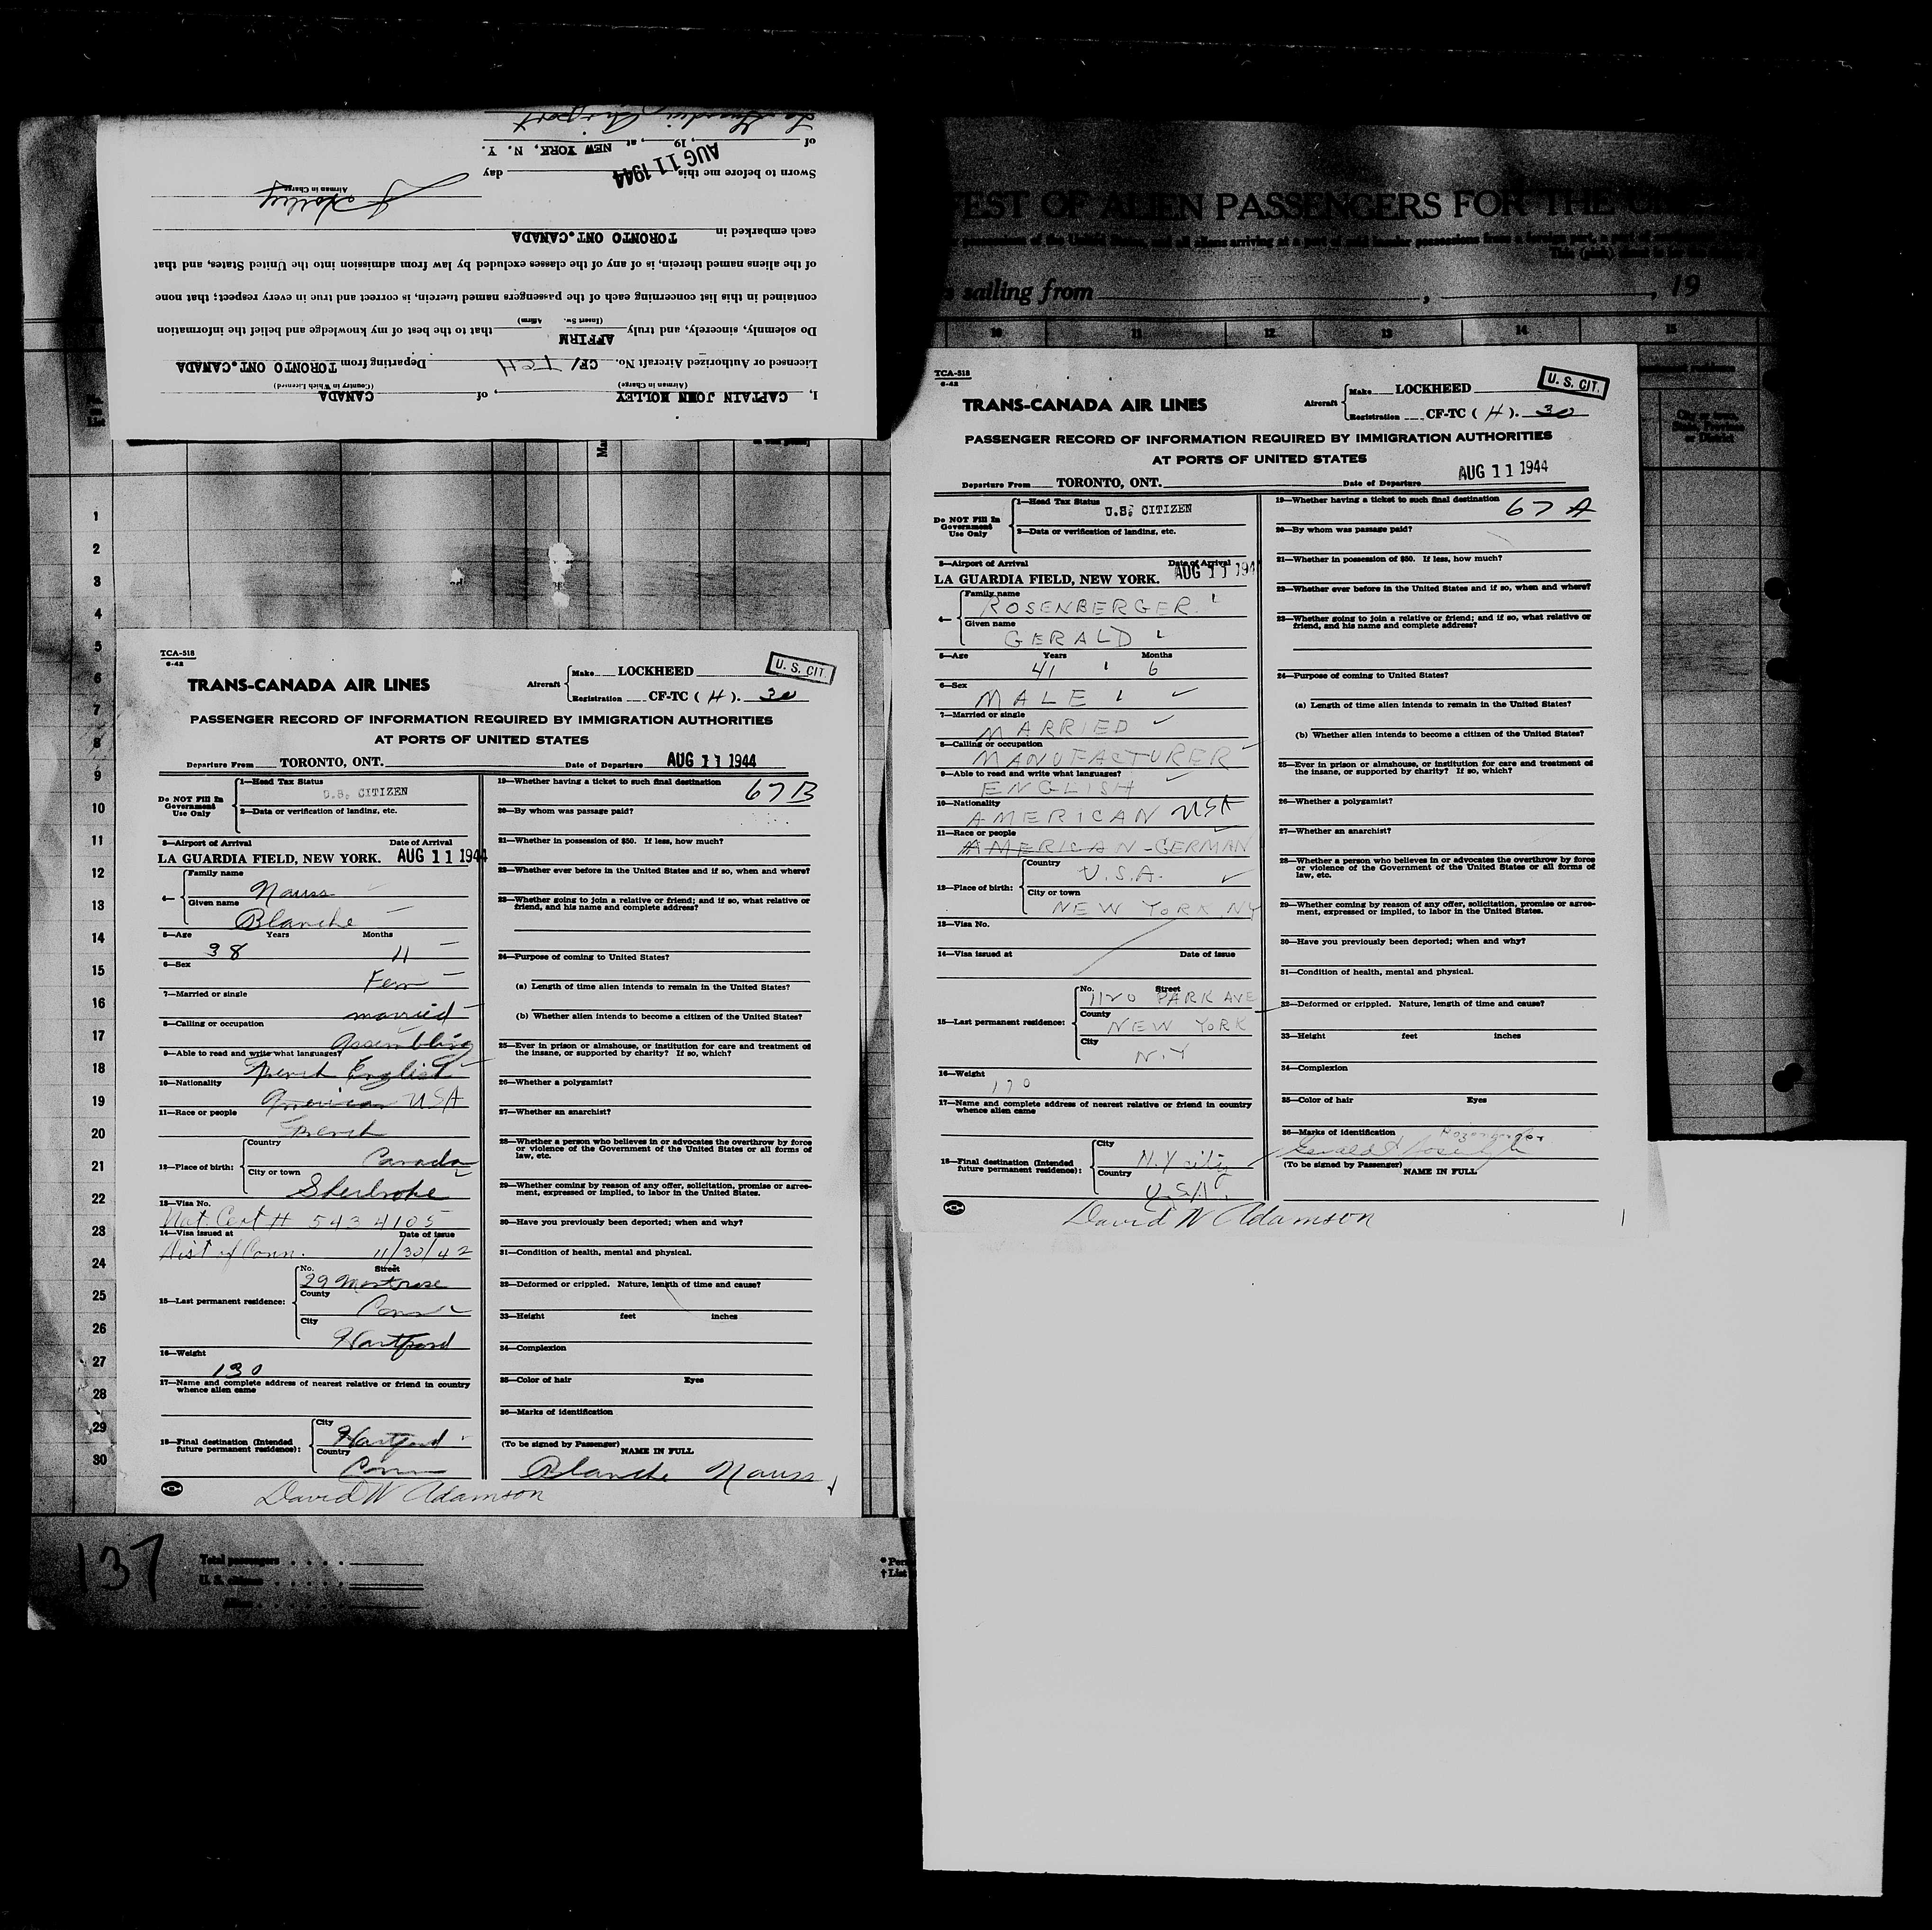 I, CAPTAIN JOHN HOLLEY, of CANADA
(Airman in Charge) (Country in Which Licensed)
Licensed or Authorized Aircraft No. CF/ TCH Departing from TORONTO ONT. CANADA
Do solemnly, sincerely, and truly AFFIRM that to the best of my knowledge and belief the information
(Insert Sw. Affirm)
contained in this list concerning each of the passengers named therein, is correct and true in every respect; that none
of the aliens named therein, is of any of the classes excluded by law from admission into the United States, and that
each embarked in TORONTO ONT. CANADA
Airman in Charge
Sworn to before me this AUG 11 1944 day
of , 19 , at NEW YORK, N. Y.
La Guardia Airport
FEST OF ALIEN PASSENGERS FOR THE
sailing from , , 19
10 11 12 13 14 15
City or town, State, Province or District
1
2
3
4
5
6
7
8
9
10
11
12
13
14
15
16
17
18
19
20
21
22
23
24
25
26
27
28
29
30
TCA-518
6-42
U. S. CIT.
TRANS-CANADA AIR LINES
Aircraft Make LOCKHEED
Registration CF-TC ( H ). 30
PASSENGER RECORD OF INFORMATION REQUIRED BY IMMIGRATION AUTHORITIES
AT PORTS OF UNITED STATES
Departure From TORONTO, ONT. Date of Departure AUG 11 1944
Do NOT Fill In Government Use Only
1—Head Tax Status
U.S. CITIZEN
2—Data or verification of landing, etc.
3—Airport of Arrival Date of Arrival
LA GUARDIA FIELD, NEW YORK. AUG 11 1944
4— Family name
Nauss
Given name
Blanche
5—Age Years Months
38 11
6—Sex
Fem
7—Married or single
married
8—Calling or occupation
Assembling
9—Able to read and write what languages?
French English
10—Nationality
American USA
11—Race or people
French
12—Place of birth: Country
Canada
City or town
Sherbroke
13—Visa No.
Nat. Cert # 5434105
14—Visa issued at Date of issue
Dist of Conn. 11/30/42
15—Last permanent residence: No. Street
29 Montrose
County
Conn
City
Hartford
16—Weight
130
17—Name and complete address of nearest relative or friend in country whence alien came
18—Final destination (Intended future permanent residence): City
Hartford
Country
Conn
19—Whether having a ticket to such final destination
67 B
20—By whom was passage paid?
21—Whether in possession of $50. If less, how much?
22—Whether ever before in the United States and if so, when and where?
23—Whether going to join a relative or friend; and if so, what relative or friend, and his name and complete address?
24—Purpose of coming to United States?
(a) Length of time alien intends to remain in the United States?
(b) Whether alien intends to become a citizen of the United States?
25—Ever in prison or almshouse, or institution for care and treatment of the insane, or supported by charity? If so, which?
26—Whether a polygamist?
27—Whether an anarchist?
28—Whether a person who believes in or advocates the overthrow by force or violence of the Government of the United States or all forms of law, etc.
29—Whether coming by reason of any offer, solicitation, promise or agreement, expressed or implied, to labor in the United States.
30—Have you previously been deported; when and why?
31—Condition of health, mental and physical.
32—Deformed or crippled. Nature, length of time and cause?
33—Height feet inches
34—Complexion
35—Color of hair Eyes
36—Marks of identification
(To be signed by Passenger) NAME IN FULL
Blanche Nauss
David W Adamson
137
Total passengers
U. S. citizens
Aliens
TCA-518
6-42
U. S. CIT.
TRANS-CANADA AIR LINES
Aircraft Make LOCKHEED
Registration CF-TC ( H ). 30
PASSENGER RECORD OF INFORMATION REQUIRED BY IMMIGRATION AUTHORITIES
AT PORTS OF UNITED STATES
Departure From TORONTO, ONT. Date of Departure AUG 11 1944
Do NOT Fill In Government Use Only
1—Head Tax Status
U.S. CITIZEN
2—Data or verification of landing, etc.
3—Airport of Arrival Date of Arrival
LA GUARDIA FIELD, NEW YORK. AUG 11 194
4— Family name
ROSENBERGER
Given name
GERALD
5—Age Years Months
41 6
6—Sex
MALE
7—Married or single
MARRIED
8—Calling or occupation
MANUFACTURER
9—Able to read and write what languages?
ENGLISH
10—Nationality
AMERICAN USA
11—Race or people
AMERICAN-GERMAN
12—Place of birth: Country
U.S.A.
City or town
NEW YORK NY
13—Visa No.
14—Visa issued at Date of issue
15—Last permanent residence: No. Street
1120 PARK AVE
County
NEW YORK
City
N.Y
16—Weight
170
17—Name and complete address of nearest relative or friend in country whence alien came
18—Final destination (Intended future permanent residence): City
N.Y city
Country
U.S.A.
19—Whether having a ticket to such final destination
67 A
20—By whom was passage paid?
21—Whether in possession of $50. If less, how much?
22—Whether ever before in the United States and if so, when and where?
23—Whether going to join a relative or friend; and if so, what relative or friend, and his name and complete address?
24—Purpose of coming to United States?
(a) Length of time alien intends to remain in the United States?
(b) Whether alien intends to become a citizen of the United States?
25—Ever in prison or almshouse, or institution for care and treatment of the insane, or supported by charity? If so, which?
26—Whether a polygamist?
27—Whether an anarchist?
28—Whether a person who believes in or advocates the overthrow by force or violence of the Government of the United States or all forms of law, etc.
29—Whether coming by reason of any offer, solicitation, promise or agreement, expressed or implied, to labor in the United States.
30—Have you previously been deported; when and why?
31—Condition of health, mental and physical.
32—Deformed or crippled. Nature, length of time and cause?
33—Height feet inches
34—Complexion
35—Color of hair Eyes
36—Marks of identification
(To be signed by Passenger) NAME IN FULL
David W Adamson